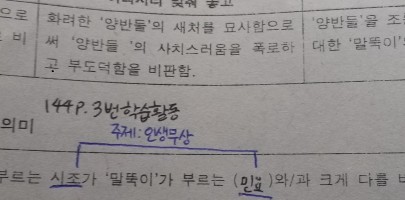 맞춰 놓고
으로 화려한 '양반들'의 새처를 묘사함으로 '양반들'을 조
비 써 '양반들 '의 사치스러움을 폭로하 대한 '말뚝이'의
고 부도덕함을 비판함.
144p. 3번 학습활동
의미 주제: 인생무상
부르는 시조가 '말뚝이'가 부르는 (민요)와/과 크게 다를 바